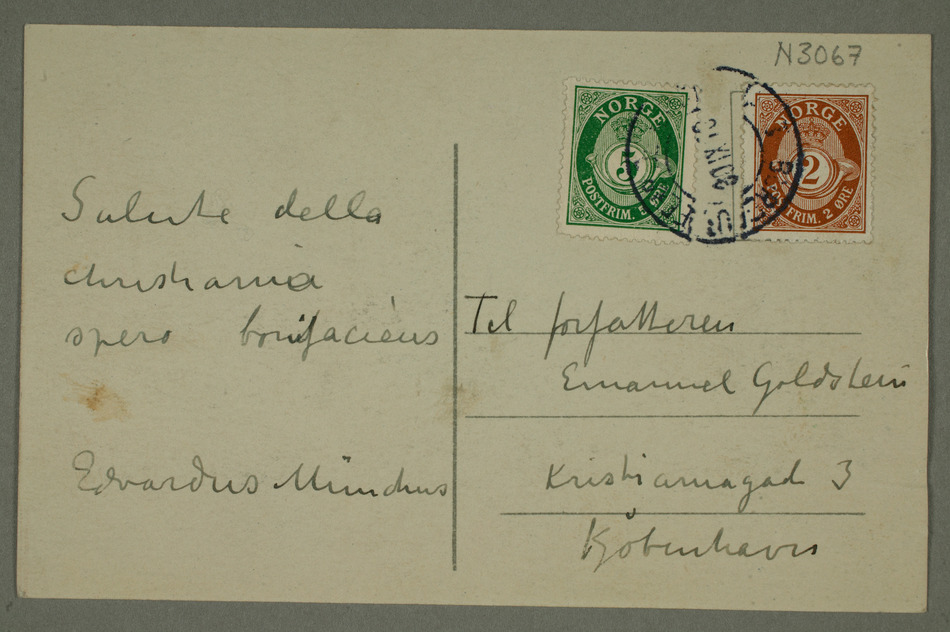 N3067
NORGE
5
POSTFRIM. 5 ØRE
NORGE
2
POSTFRIM. 2 ØRE
Salute della
christiania
spero bonifaciens
Edvardus Münchus
Til forfatteren
Emanuel Goldstein
Kristianiagade 3
Kjøbenhavn